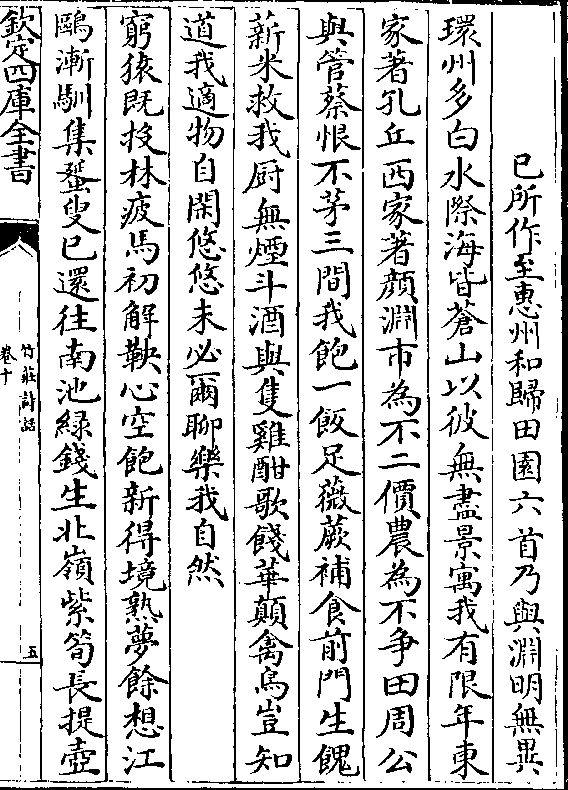 已所作至惠州和歸田園六首乃與淵明無異
環州多白水際海皆蒼山以彼無盡景寓我有限年東
家著孔丘西家著顔淵市為不二價農為不爭田周公
與管蔡恨不茅三間我飽一飯足薇蕨補食前門生餽
薪米救我厨無煙斗酒與隻雞酣歌餞華顛禽鳥豈知
道我適物自閑悠悠未必爾聊樂我自然
窮猿既投林疲馬初解鞅心空飽新得境熟夢餘想江
鷗漸馴集蜑叟已還往南池緑錢生北嶺紫筍長提壺
欽定四庫全書
竹莊詩話
卷十
五